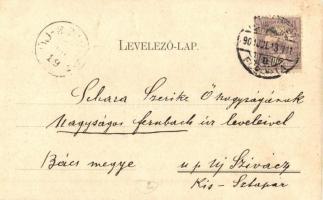 LEVELEZŐ-LAP.
Schara Szerike Őnagyságának
Nagyságos Fernbach úr leveleivel
Bács megye u.p. Uj Szivácz
Kis-Sztapar